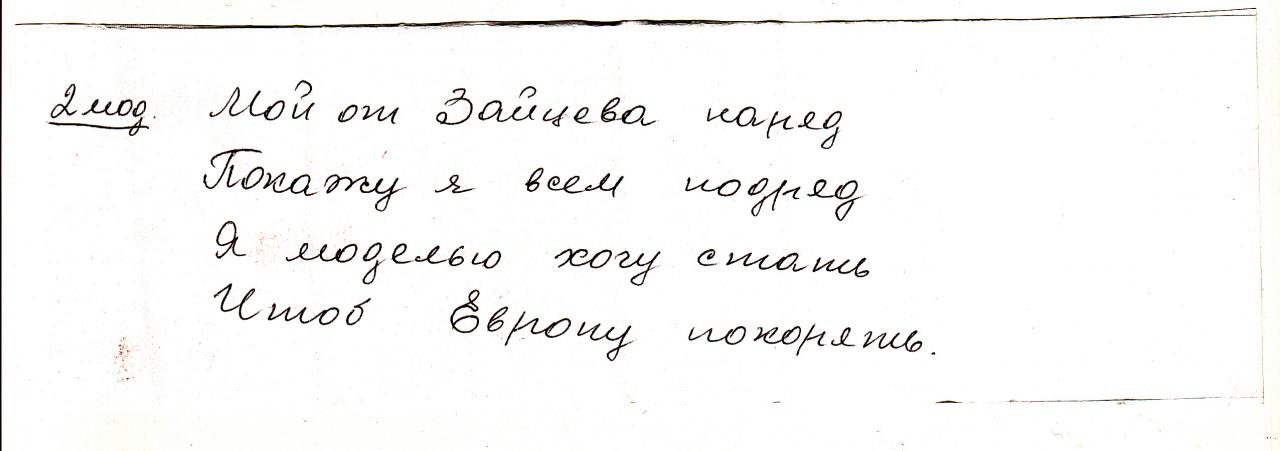 2 мод. Мой от Зайцева наряд
Покажу я всем подряд
Я моделью хочу стать
Чтоб Европу покорять.